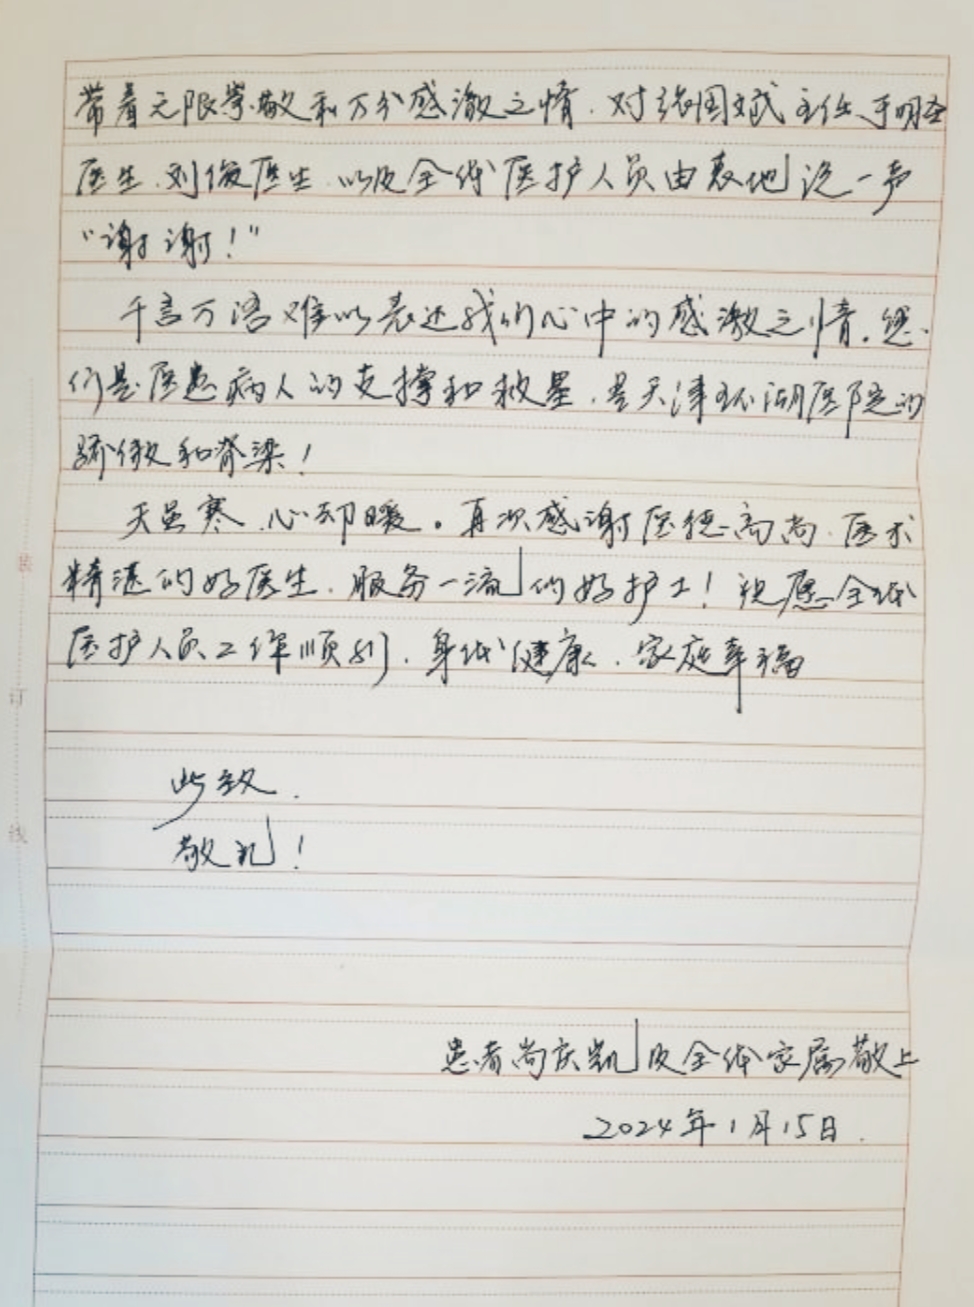 带着无限崇敬和万分感激之情.对张国斌主任、于明圣
医生.刘俊医生.以及全体医护人员由衷地说一声
“谢谢!”
千言万语难以表达我们心中的感激之情.您
们是医患病人的支撑和救星.是天津环湖医院的
骄傲和脊梁!
天虽寒.心却暖。再次感谢医德高尚.医术
精湛的好医生.服务一流的好护士!祝愿全体
医护人员工作顺利.身体健康.家庭幸福
此致.
敬礼!
患者尚庆凯及全体家属敬上
2024年1月15日.
装
订
线